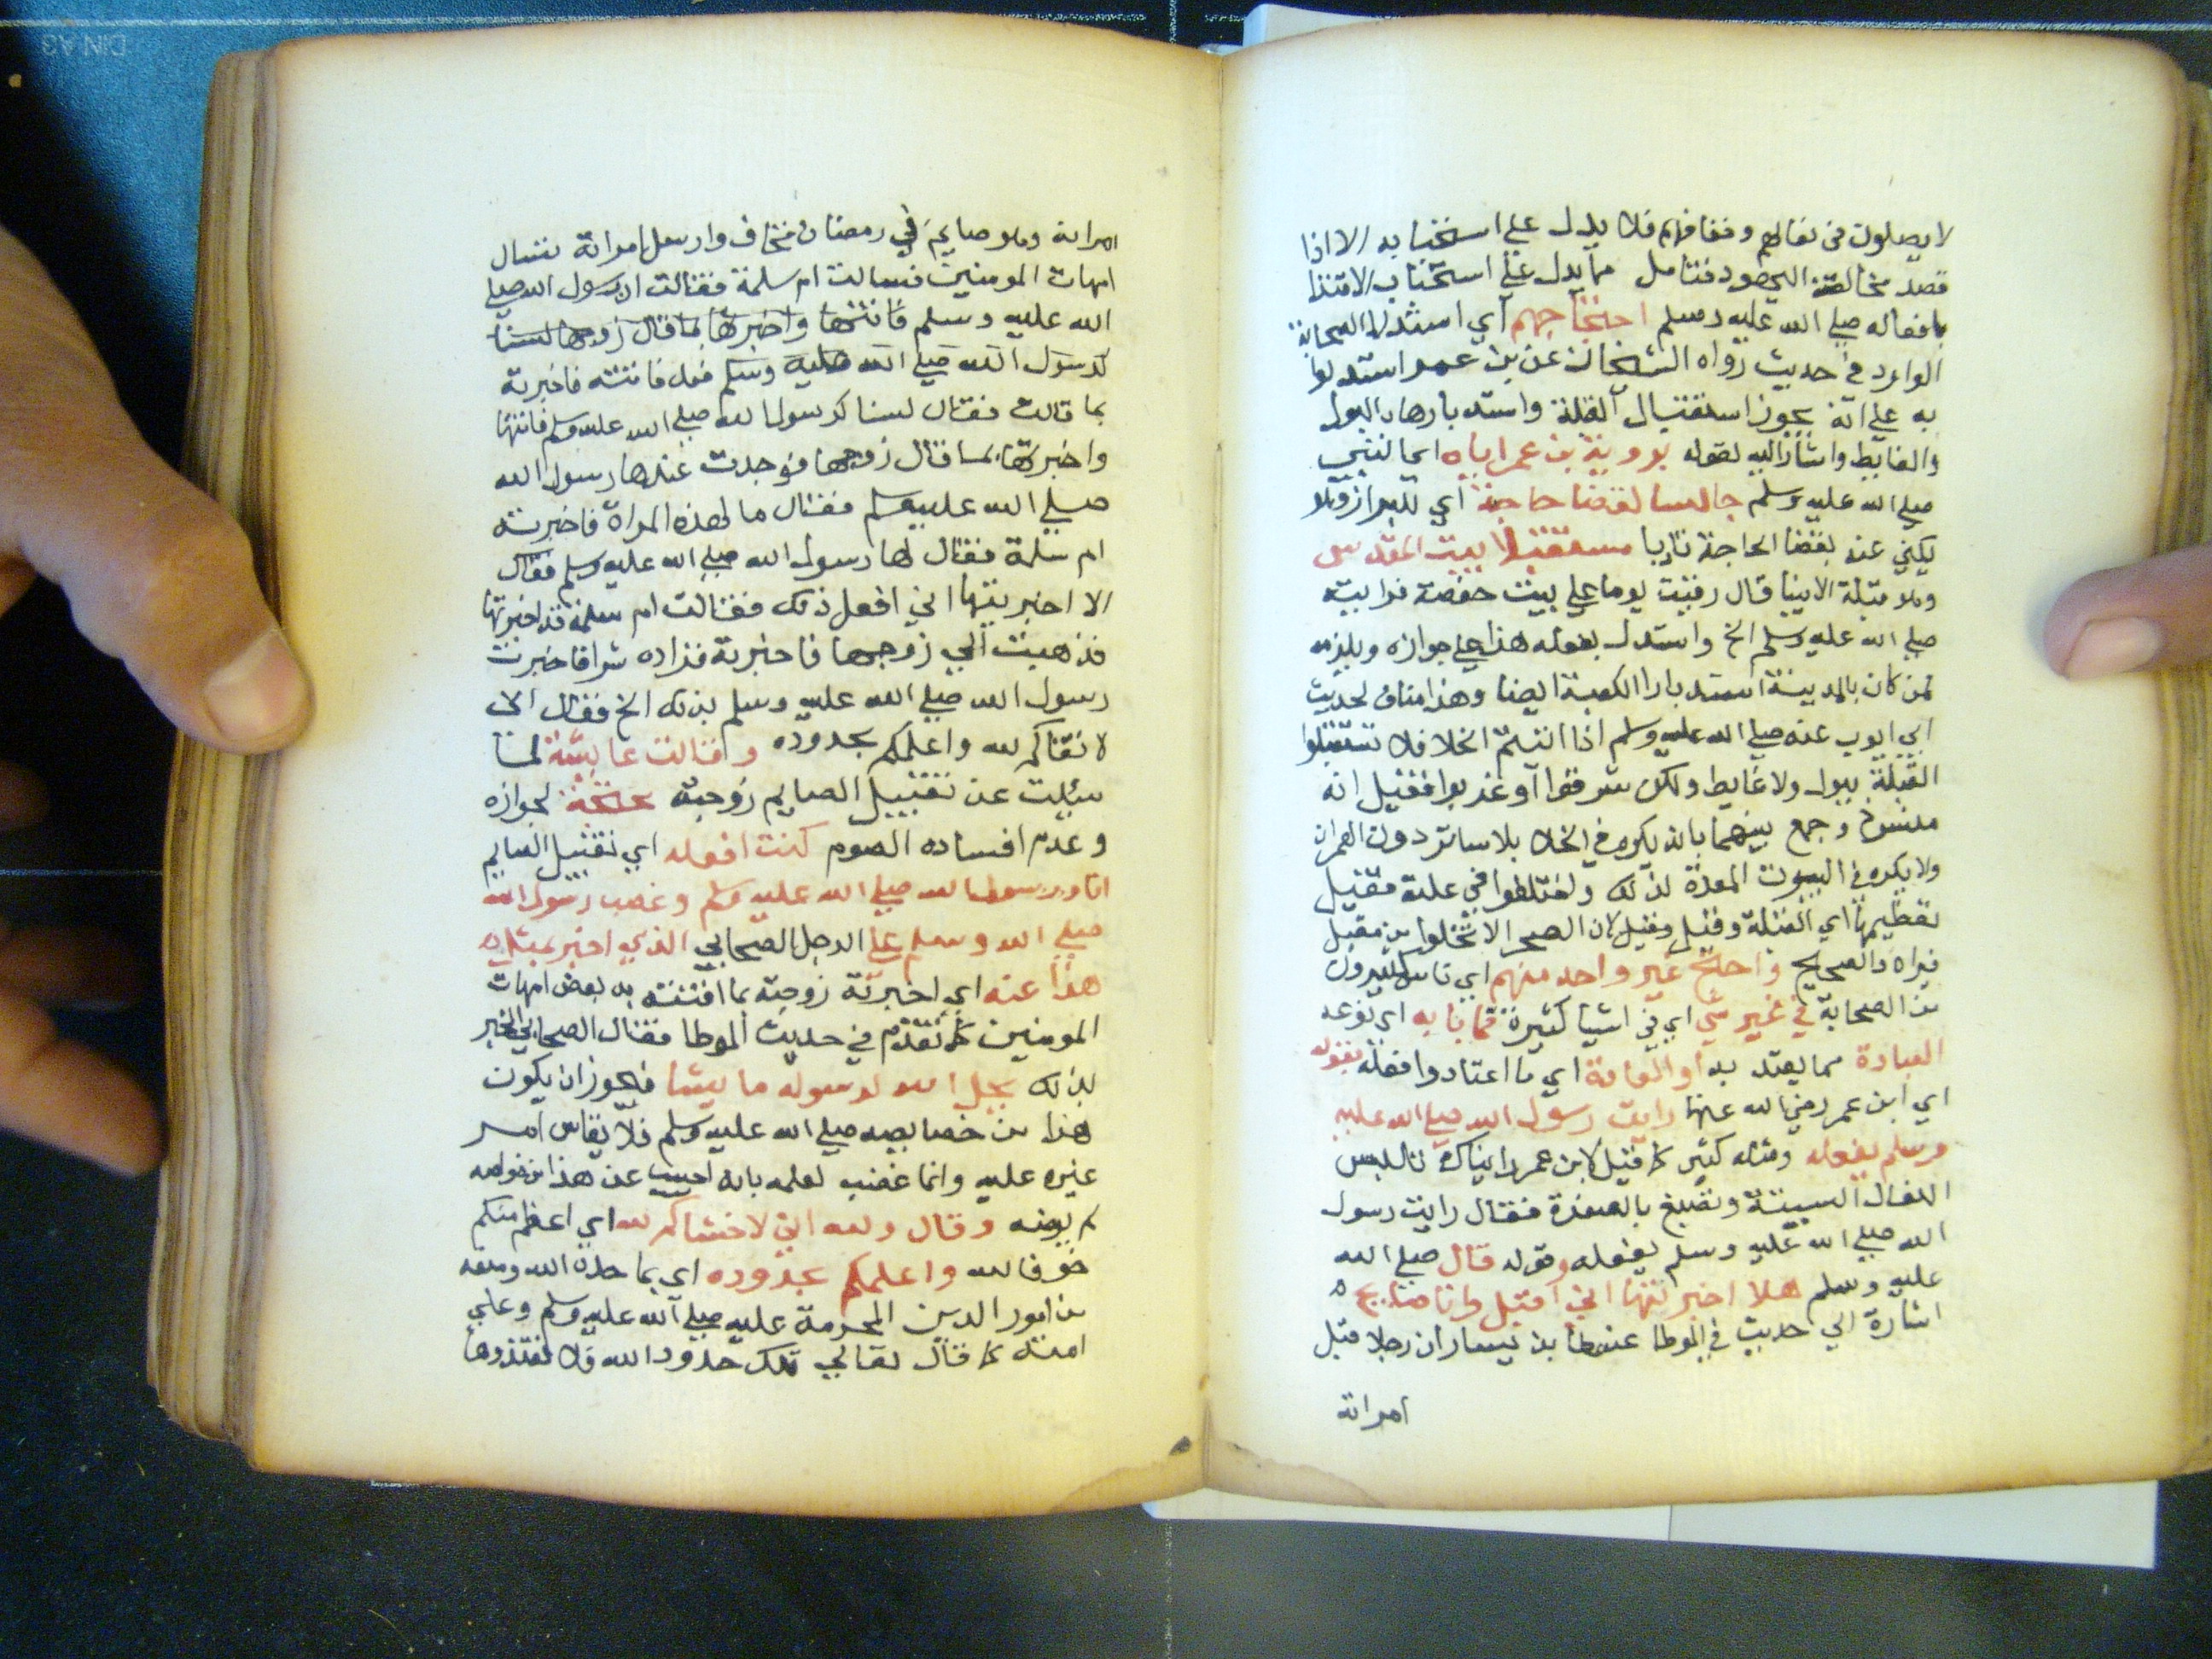 لا يصلون في نعالهم وخفافهم فلا يدل على استحبابه الا اذا
قصد مخالفة اليهود فتامل مما يدل على استحباب الاقتدا
بافعاله صلى الله عليه وسلم احتجاجهم اي استدلال الصحابة
الوارد في حديث رواه الشيخان عن بن عمر استدلوا
به على انه يجوز استقبال القبلة واستدبارها بالبول
والغايط واشار اليه بقوله بروية بن عمر اياه اي النبي
صلى الله عليه وسلم جالسا لقضا حاجته اي للبراز وهو
يكني عنه بقضا الحاجة تادبا مستقبلا بيت المقدس
وهو قبلة الانبيا قال رقيت يوما على بيت حفصة فرايته
صلى الله عليه وسلم الخ واستدل بفعله هذا على جوازه ويلزمه
لمن كان بالمدينة استدبار الكعبة ايضا وهذا مناف لحديث
ابي ايوب عنه صلى الله عليه وسلم اذا اتيتم الخلا فلا تستقبلوا
القبلة ببول ولا غايط ولكن شرقوا او غربوا فقيل انه
منسوخ وجمع بينهما بانه يكره في الخلا بلا ساتر دون العمران
ولا يكره في البيوت المعدة لذلك واختلفوا في علته فقيل
تعظيمها اي القبلة وقيل وقيل لان الصحرا لا تخلوا من مقبل
فيراه والصحيح واحتج غير واحد منهم اي ناس كثيرون
من الصحابة في غير شي اي في اشيا كثيرة مما بابه اي نوعه
العبادة مما يعتد به او العادة اي ما اعتادوا فعله بقوله
اي ابن عمر رضي الله عنهما رايت رسول الله صلى الله عليه
وسلم يفعله ومثله كثير كما قيل لابن عمر رايناك تلبس
النعال السبتية وتصبغ بالصفرة فقال رايت رسول
الله صلى الله عليه وسلم يفعله وقوله قال صلى الله
عليه وسلم هلا اخبرتها اني اقبل وانا صايم
اشارة الي حديث في الموطا عن عطا بن يسار ان رجلا قبل
امراته
امراته وهو صايم في رمضان فخاف وارسل امراته تسال
امهات المومنين فسالت ام سلمة فقالت ان رسول الله صلى
الله عليه وسلم فاتتها واخبرتها بما قال زوجها لسنا
كرسول الله صلى الله عليه وسلم فاتته فاخبرته
بما قالت فقال لسنا كرسول الله صلى الله عليه وسلم فاتتها
واخبرتها بما قال زوجها فوجدت عندها رسول الله
صلى الله عليه وسلم فقال ما لهذه المراة فاخبرته
ام سلمة فقال لها رسول الله صلى الله عليه وسلم فقال
الا اخبرتيها اني افعل ذلك فقالت ام سلمة قد اخبرتها
فذهبت الي زوجها فاخبرته فزاده شرا فاخبرت
رسول الله صلى الله عليه وسلم بذلك الخ فقال اني
لاتقاكم لله واعلمكم بحدوده وقالت عايشة لما
سيلت عن تقبيل الصايم زوجته محتجة لجوازه
وعدم افساده الصوم كنت افعله اي تقبيل الصايم
انا ورسول الله صلى الله عليه وسلم وغضب رسول الله
صلى الله وسلم على الرجل الصحابي الذي اخبر بمثل
هذا عنه اي اخبرته زوجته بما افتته به بعض امهات
المومنين كما تقدم في حديث الموطا فقال الصحابي المخبر
بذلك يحل الله لرسوله ما يشا فيجوز ان يكون
هذا من خصايصه صلى الله عليه وسلم فلا يقاس امر
غيره عليه وانما غضب لعلمه بانه اجيب عن هذا
لم يرضه وقال والله اني لاخشاكم لله اي اعظم منكم
خوفا لله واعلمكم بحدوده اي بما حده الله ومنعه
من امور الدين المحرمة عليه صلى الله عليه وسلم وعلي
امته كما قال تعالي تلك حدود الله فلا تعتدوها